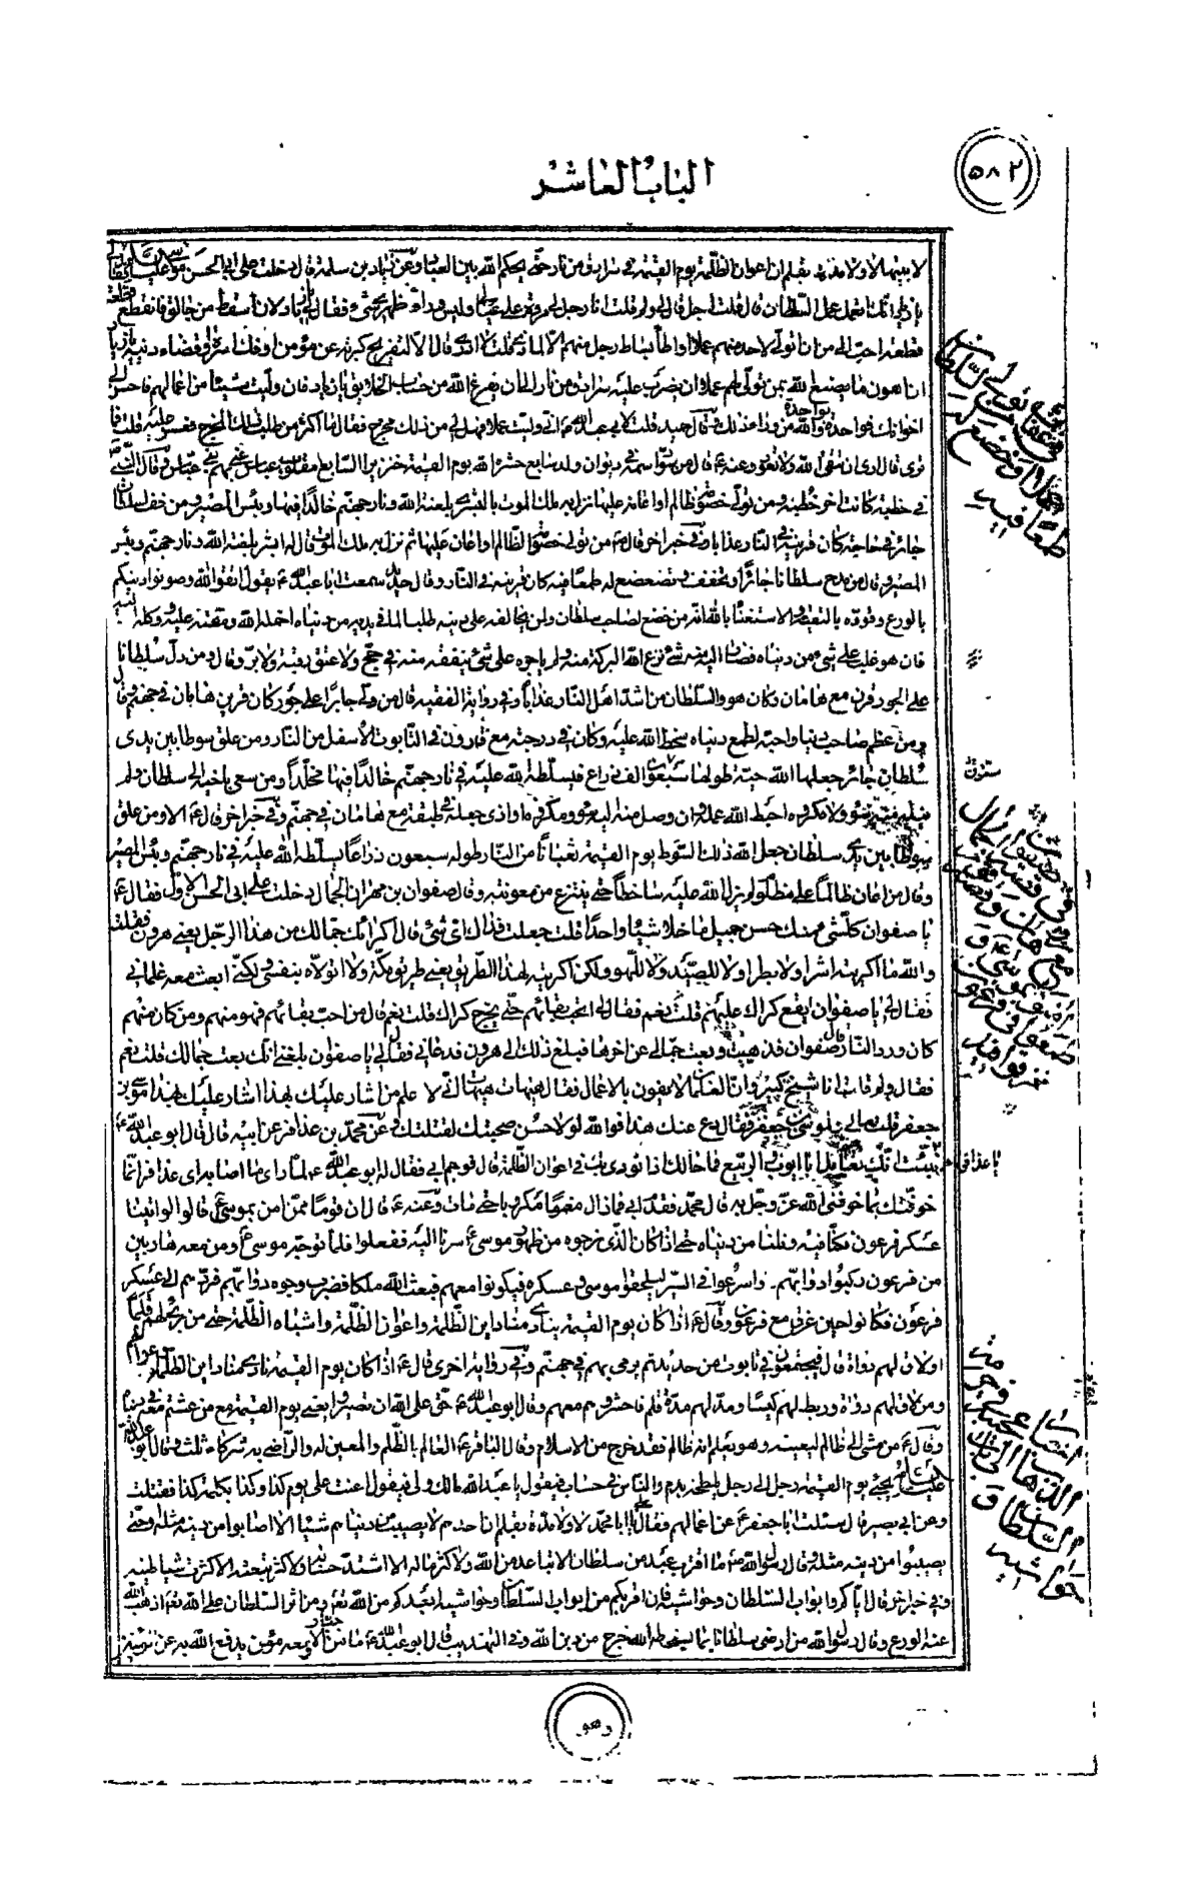 ٥٨٢
الباب العاشر
لا بينها لا ولا مدة بقلم ان اعوان الظلمة يوم القيمة في سرادق من نار حتى يحكم الله بين العباد وعن زياد بن سلمة قال دخلت على ابي الحسن موسى عليه السلام فقال لي
يا زياد انك لتعمل عمل السلطان قال قلت اجل قال لي ولم قلت انا رجل لي مروة وعلي عيال وليس وراء ظهري شيء فقال لي يا زياد لان اسقط من حالق فانقطع قطعة
قطعة احب الي من ان اتولى لاحد منهم عملا او اطأ بساط رجل منهم الا لماذا قلت لا ادري قال الا لتفريج كربة عن مؤمن او فك اسره او قضاء دينه يا زياد
ان اهون ما يصنع الله بمن تولى لهم عملا ان يضرب عليه سرادق من نار الى ان يفرغ الله من حساب الخلايق يا زياد فان وليت شيئا من اعمالهم فاحسن الى
اخوانك فواحدة بواحدة والله من وراء ذلك وقال حميد قلت لابي عبد الله ع اني وليت عملا فهل لي من ذلك مخرج فقال ما اكثر من طلب ذلك المخرج فعسر عليه قلت فما
ترى قال ارى ان تتقي الله ولا تعود وعنه ع قال من سود اسمه في ديوان ولد سابع حشره الله يوم القيمة خنزيرا السابع مقلوب عباس
في خطبة كانت اخر خطبة ومن تولى خصومة ظالم او اعانه عليها نزل به ملك الموت بالبشرى بلعنة الله ونار جهنم خالدا فيها وبئس المصير ومن خف لسلطان
جائر في حاجة كان قرينه في النار عذابا وفي خبر اخر قال ع من تولى خصومة ظالم او اعان عليها ثم نزل به ملك الموت قال له ابشر بلعنة الله ونار جهنم وبئس
المصير وقال من مدح سلطانا جائرا وتخفف وتضعضع له طمعا فيه كان قرينه في النار وقال حديد سمعت ابا عبد الله ع يقول اتقوا الله وصونوا دينكم
بالورع وقووه بالتقية والاستغناء بالله انه من خضع لصاحب سلطان ولمن يخالفه على دينه طلبا لما في يديه من دنياه اخمله الله ومقته عليه ووكله اليه
فان هو غلب على شيء من دنياه فصار اليه منه شيء نزع الله البركة منه ولم ياجره على شيء ينفقه منه في حج ولا عتق رقبة ولا بر وقال ومن دل سلطانا
على الجور قرن مع هامان وكان هو والسلطان من اشد اهل النار عذابا وفي رواية الفقيه قال من ولى جايرا على جور كان قرين هامان في جهنم وقال
ومن عظم صاحب دنيا واحبه لطمع دنياه سخط الله عليه وكان في درجته مع قارون في التابوت الاسفل من النار ومن علق سوطا بين يدي
سلطان جائر جعلها الله حية طولها سبعون الف ذراع فيسلطه الله عليه في نار جهنم خالدا فيها مخلدا ومن سعى باخيه الى سلطان ولم
ينله منه سوء ولا مكروه احبط الله عمله وان وصل منه اليه سوء ومكروه او اذى جعله في طبقة مع هامان في جهنم وفي خبر اخر قال ع الا ومن علق
سوطا بين يدي سلطان جعل الله ذلك السوط يوم القيمة ثعبانا من النار طوله سبعون ذراعا يسلطه الله عليه في نار جهنم وبئس المصير
وقال من اعان ظالما على مظلوم لم يزل الله عليه ساخطا حتى ينتزع من معونته وقال صفوان بن مهران الجمال دخلت على ابي الحسن الاول فقال ع
يا صفوان كل شيء منك حسن جميل ما خلا شيئا واحدا قلت جعلت فداك اي شيء قال اكرائك جمالك من هذا الرجل يعني هرون فقلت
والله ما اكريته اشرا ولا بطرا ولا للصيد ولا للهو ولكن اكريته لهذا الطريق يعني طريق مكة ولا اتولاه بنفسي لكني ابعث معه غلماني
فقال لي يا صفوان ايقع كراك عليهم قلت نعم فقال لي اتحب بقائهم حتى يخرج كراك قلت نعم قال من احب بقائهم فهو منهم ومن كان منهم
كان ورد النار قال صفوان فذهبت وبعت جمالي عن اخرها فبلغ ذلك الى هرون فدعاني فقال لي يا صفوان بلغني انك بعت جمالك قلت نعم
فقال ولم قلت انا شيخ كبير وان الغلمان لا يفون بالاعمال فقال هيهات هيهات اني لا علم من اشار عليك بهذا اشار عليك بهذا موسى بن
جعفر قلت مالي ولموسى بن جعفر فقال دع عنك هذا فوالله لولا حسن صحبتك لقتلتك وعن محمد بن عذافر عن ابيه قال قال ابو عبد الله ع
يا عذافر نبئت انك تعامل ابا ايوب والربيع فما حالك اذا نودي بك في اعوان الظلمة قال فوجم ابي فقال له ابو عبد الله ع لما راى ما اصابه اي عذافر انما
خوفتك بما خوفني الله عز وجل به قال محمد فقدم ابي فما زال مغموما مكروبا حتى مات وعنه ع قال ان قوما ممن امن بموسى ع قالوا لو اتينا
عسكر فرعون نكنا فيه ونلنا من دنياه حتى اذا كان الذي نرجوه من ظهور موسى ع صرنا اليه ففعلوا فلما توجه موسى ع ومن معه هاربين
من فرعون ركبوا دوابهم واسرعوا في السير ليلحقوا موسى وعسكره فيكونوا معهم فبعث الله ملكا فضرب وجوه دوابهم فردهم الى عسكر
فرعون فكانوا فيمن غرق مع فرعون وقال ع اذا كان يوم القيمة ينادي مناد اين الظلمة واعوان الظلمة واشباه الظلمة حتى من برى لهم قلما
او لاق لهم دواة قال فيجتمعون في تابوت من حديد ثم يرمى بهم في جهنم وفي رواية اخرى قال ع اذا كان يوم القيمة نادى مناد اين الظلمة واعوانهم
ومن لاق لهم دواة وربط لهم كيسا ومد لهم مدة قلم فاحشروهم معهم وقال ابو عبد الله ع حق على الله ان تصيروا يعني يوم القيمة مع من عشتم معه في دنياه
وقال ع من مشى الى ظالم ليعينه وهو يعلم انه ظالم فقد خرج من الاسلام وقال الباقر ع العامل بالظلم والمعين له والراضي به شركاء ثلث وقال ابو عبد الله
عليه السلام يجيء يوم القيمة رجل الى رجل يلطخه بدم والناس في حساب فيقول يا عبد الله مالك ولي فيقول اعنت علي يوم كذا وكذا بكلمة كذا فقتلت
وعن ابي بصير قال سئلت ابا جعفر ع عن اعمالهم فقال لي يا ابا محمد لا ولا مدة بقلم ان احدهم لا يصيب من دنياهم شيئا الا اصابوا من دينه مثله وحتى
يصيبوا من دينه مثله وقال رسول الله ص ما اقرب عبد من سلطان الا تباعد من الله ولا كثر ماله الا اشتد حسابه ولا كثر تبعه الا كثر شياطينه
وفي خبر اخر قال اياكم وابواب السلطان وحواشيه فان اقربكم من ابواب السلطان وحواشيه ابعدكم من الله تعالى ومن اثر السلطان على الله تعالى اذهب الله
عنه الورع وقال رسول الله من ارضى سلطانا بما يسخط الله خرج من دين الله وفي التهذيب قال ابو عبد الله ع ما من جبار الا ومعه مؤمن يدفع الله به عن المؤمنين
وهو